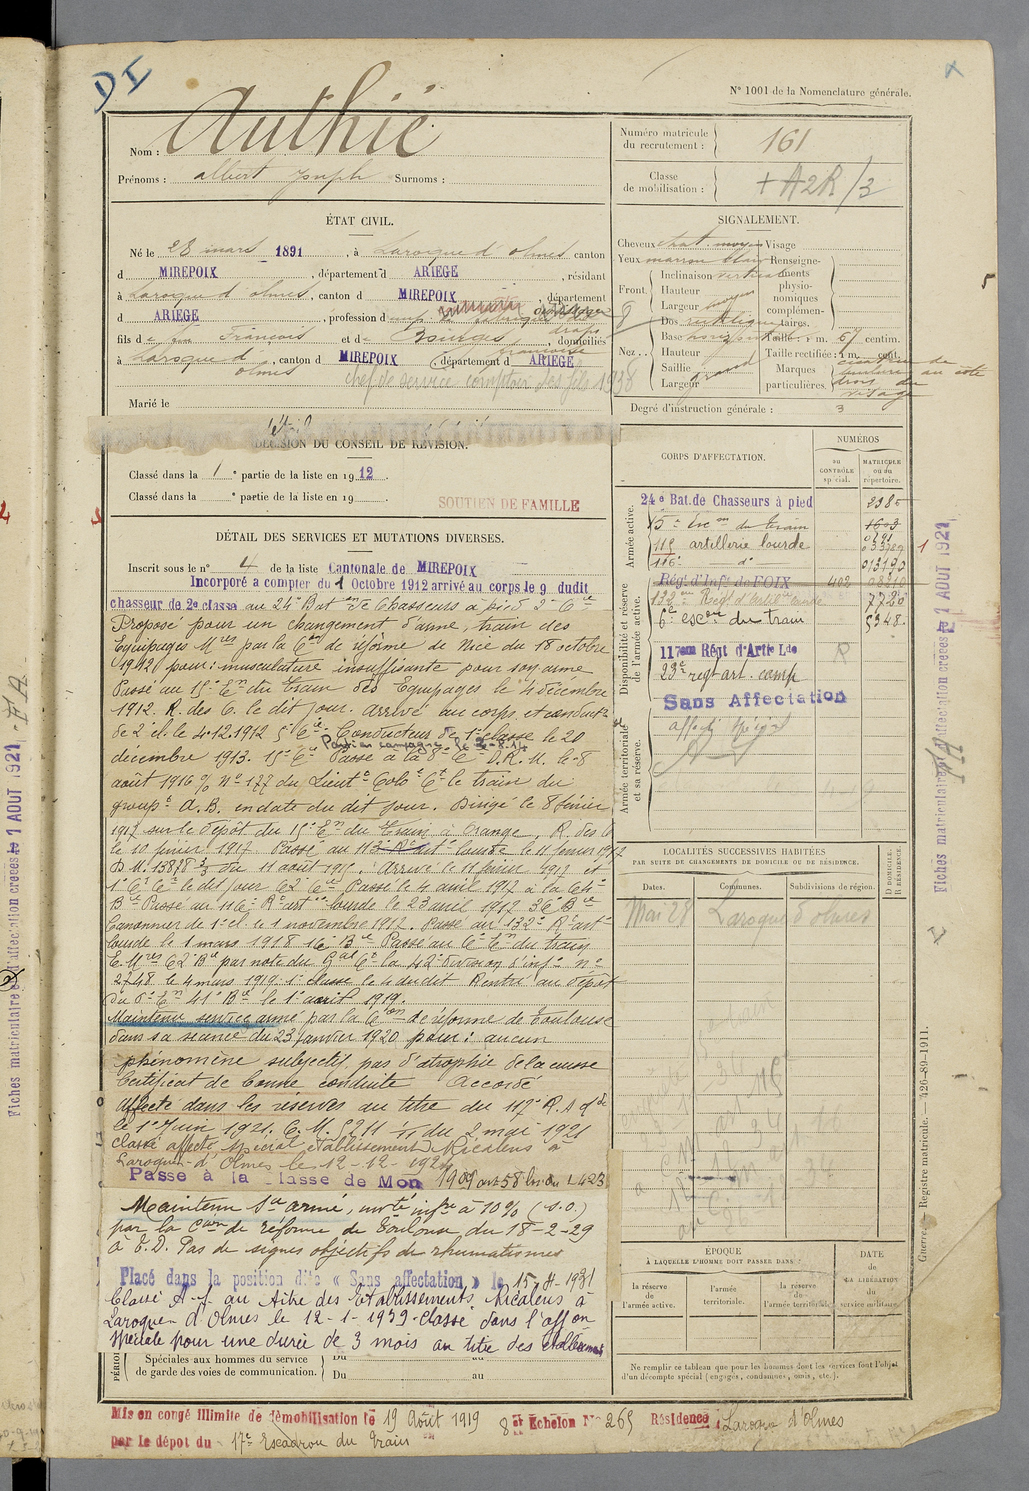 DI
N° 1001 de la Nomenclature générale.
Nom : Authié
Prénoms : albert Joseph Surnoms :
Numéro matricule du recrutement : 161
Classe de mobilisation : + A2R/3
ÉTAT CIVIL.
Né le 28 mars 1891, à Laroque d'olmes canton
d MIREPOIX, département d ARIEGE, résidant
à Laroque d'olmes, canton d MIREPOIX, département
d ARIEGE, profession d
fils d e François et d e Bourges, domiciliés
à Laroque d'olmes, canton d MIREPOIX, département d ARIEGE
chef de service comptoir des fils 1938
Marié le
SIGNALEMENT.
Cheveux chat. moyen Visage
Yeux marron clair Renseignements physionomiques complémentaires.
Front. Inclinaison verticale
Hauteur
Largeur moyen
Nez. Dos rectiligne
Base horizon Taille : 1 m. 67 centim.
Hauteur Taille rectifiée : 1 m. cent.
Saillie Marques particulières.
Largeur grand
cicatrice de
au côté
droit du
visage
Degré d'instruction générale : 3
DÉCISION DU CONSEIL DE RÉVISION.
Classé dans la 1e partie de la liste en 1912.
Classé dans la e partie de la liste en 19
SOUTIEN DE FAMILLE
CORPS D'AFFECTATION.
NUMÉROS
au CONTRÔLE spécial.
MATRICULE ou au répertoire.
Armée active.
24e Bat. de Chasseurs à pied 2985
15e Escon du train 1603
115 artillerie lourde
116e d° 013190
Disponibilité et réserve de l'armée active.
Régt d'Infie de FOIX 402
132eme Régt d'artie lourde 7720
6e escon du train 5348
117eme Régt d'Artie Lde R
23e regt art. camp
Sans Affectation
affecté spécial
Armée territoriale et sa réserve.
DÉTAIL DES SERVICES ET MUTATIONS DIVERSES.
Inscrit sous le n° 4 de la liste Cantonale de MIREPOIX
Incorporé à compter du 1 Octobre 1912 arrivé au corps le 9 dudit
chasseur de 2e classe au 24e Baton de Chasseurs à pied 3e Cie
Proposé pour un changement d'arme, train des
Equipages Mres par la Con de réforme de Nice du 18 octobre
1912 pour : musculature insuffisante pour son arme
Passé au 15e En du Train des Equipages le 4 décembre
1912. R. des C. le dit jour. arrivé au corps et conductr
de 2e cl. le 4.12.1912 5e Cie. Conducteur de 1e classe le 20
Parti en campagne le 3-8-14
décembre 1913. 15e Cie Passé à la 8e Cie D.R.M. le 8
août 1916 % N° 177 du Lieutt Colel Ct le train du
groupt A.B. en date du dit jour. Dirigé le 8 février
1917 sur le dépôt du 15e En du Train à Orange. R. des C.
le 10 février 1917. Passé au 113e Rt artie lourde le 11 février 1917
D.M. 13878 3/3 du 11 août 1915. Arrivé le 11 février 1917 et
le dit jour 62e Cie Passé le 4 avril 1917 à la 64e
Bie Passé au 116e Rt artie lourde le 23 avril 1917 36e Bie
Canonnier de 1e cl. le 1 novembre 1917. Passé au 132e Rt artie
lourde le 1 mars 1918 16e Bie Passé au 6e En du train
E. Mres 62e Bie par note du Gal Ct la 42e division d'infie n°
2748 le 4 mars 1919. 1e classe le 4 du dit Rentré au dépôt
du 6e En 41e Bie le 1e avril 1919.
Maintenu service armé par la Con de réforme de Toulouse
dans sa séance du 23 janvier 1920 pour : aucun
phénomène subjectif, pas d'atrophie de la cuisse
Certificat de bonne conduite Accordé
Affecté dans les réserves au titre du 117e R.A.
le 1e Juin 1921. C.M. 5211 1/11 du 2 mai 1921
Classé affecté spécial établissement Ricalens à
Laroque d'Olmes le 12-12-192
Passé à la classe de Mob 1909 art 58 loi du 1.4.23
Maintenu Sce armé, invté infre à 10% (S.O.)
par la Con de réforme de Toulouse du 18-2-29
à E.D. Pas de signes objectifs de rhumatismes
Placé dans la position dite « Sans affectation » le 15-8-1931
Classé A.S. au titre des Etablissements Ricalens à
Laroque d'Olmes le 12-1-1939 - Classé dans l'affon
spéciale pour une durée de 3 mois au titre des établissemts
Spéciales aux hommes du service
de garde des voies de communication.
Du au
Du au
LOCALITÉS SUCCESSIVES HABITÉES
PAR SUITE DE CHANGEMENTS DE DOMICILE OU DE RÉSIDENCE.
Dates. Communes. Subdivisions de région. D DOMICILE. R RÉSIDENCE.
Mai 28 Laroque d'olmes
ÉPOQUE
À LAQUELLE L'HOMME DOIT PASSER DANS :
la réserve de l'armée active.
l'armée territoriale.
la réserve de l'armée territoriale.
DATE de LA LIBÉRATION du service militaire.
Ne remplir ce tableau que pour les hommes dont les services font l'objet
d'un décompte spécial (engagés, condamnés, omis, etc.).
Guerre. — Registre matricule. — 426-89-1911.
Fiches matriculaire et d'affectation créées le 1 AOUT 1921
Mis en congé illimité de démobilisation le 19 Août 1919 8e Echelon N° 265 Résidence : Laroque d'Olmes
par le dépôt du 17e Escadron du train